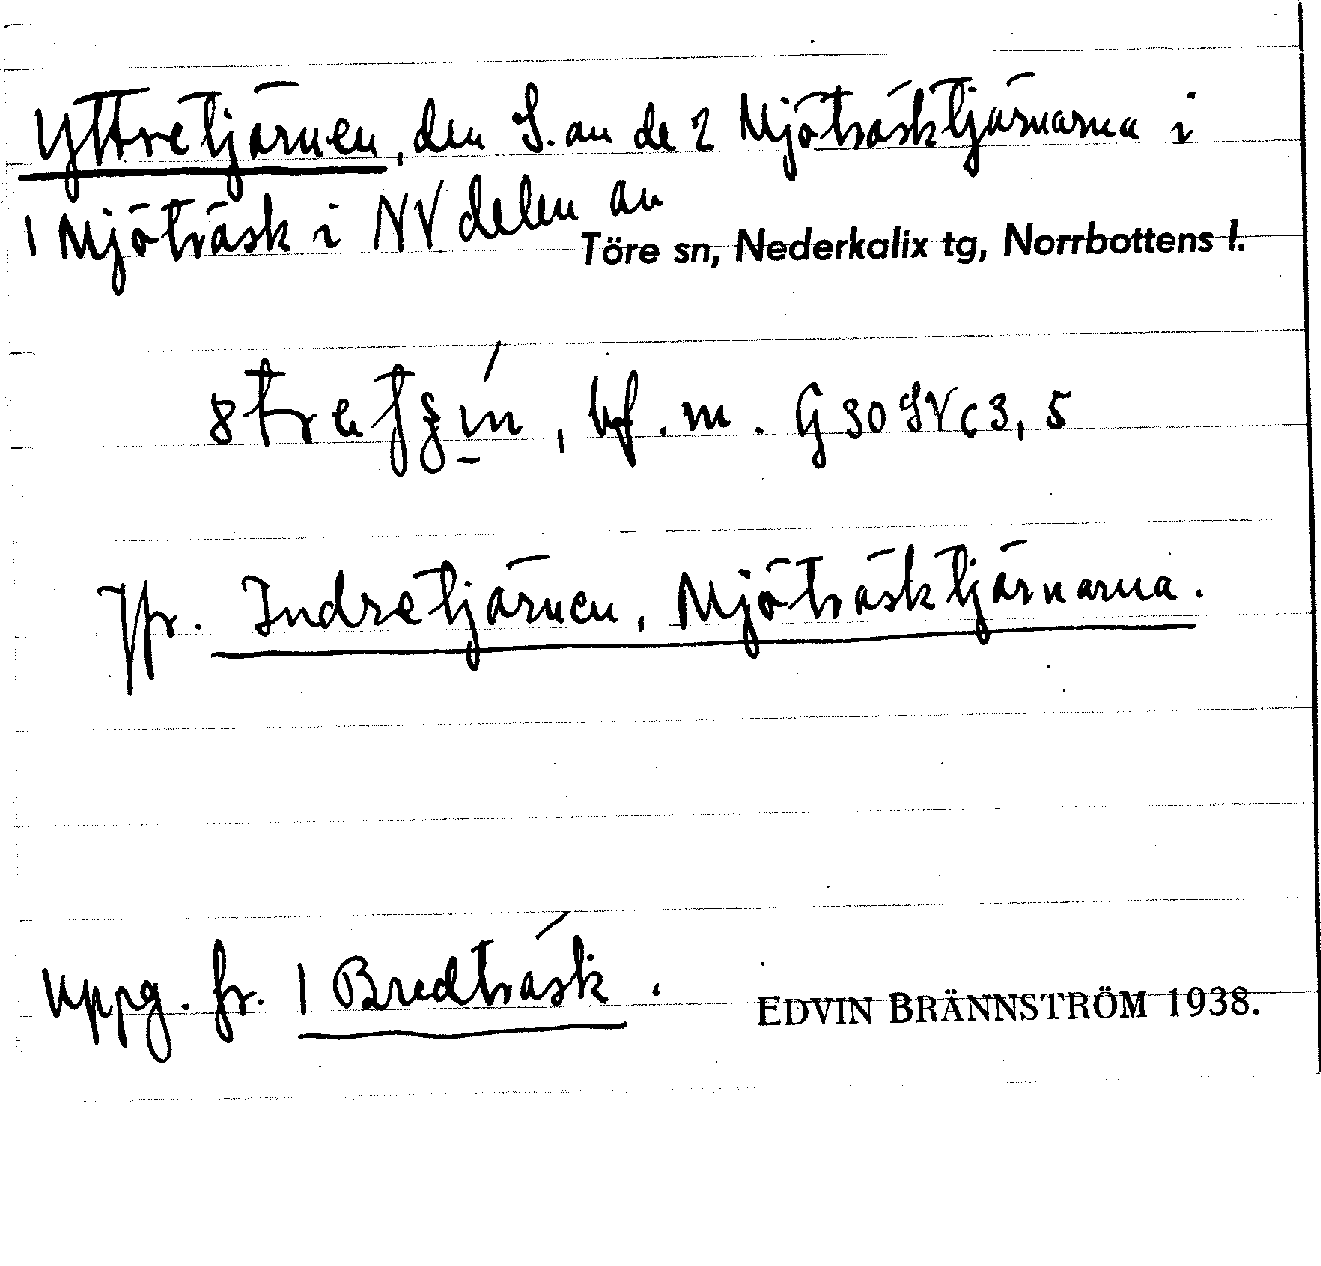 Yttretjärnen, den S. av de 2 Mjöträsktjärnarna i
1 Mjöträsk i NV delen av
Töre sn, Nederkalix tg, Norrbottens l.
bf. m. G 30 SV c 3, 5
Jfr. Indretjärnen, Mjöträsktjärnarna.
Uppg. fr. 1 Bredträsk.
EDVIN BRÄNNSTRÖM 1938.